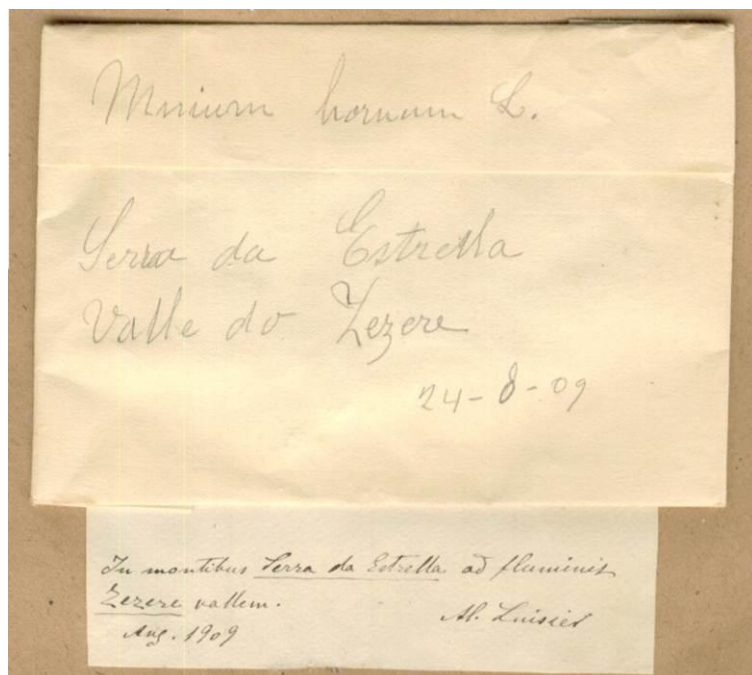 Mnium hornum L.
Serra da Estrella
Valle do Zezere
24-8-09
In montibus Serra da Estrella ad fluminis
Zezere vallem.
Aug. 1909
Al. Luisier